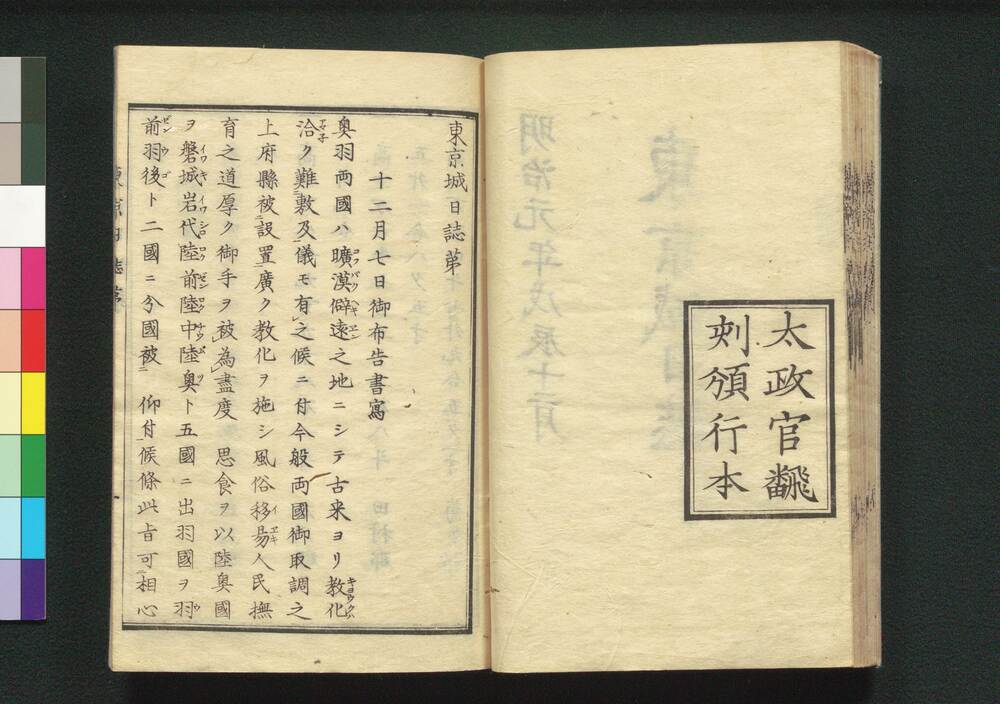 太政官飜
刻頒行本
東京城日誌第
十二月七日御布告書寫
奥羽両國ハ曠漠僻遠之地ニシテ古来ヨリ教化
洽ク難敷及儀モ有之候ニ付今般両國御取調之
上府縣被設置廣ク教化ヲ施シ風俗移易人民撫
育之道厚ク御手ヲ被為盡度 思食ヲ以陸奥國
ヲ磐城岩代陸前陸中陸奥ト五國ニ出羽國ヲ羽
前羽後ト二國ニ分國被 仰付候條此旨可相心